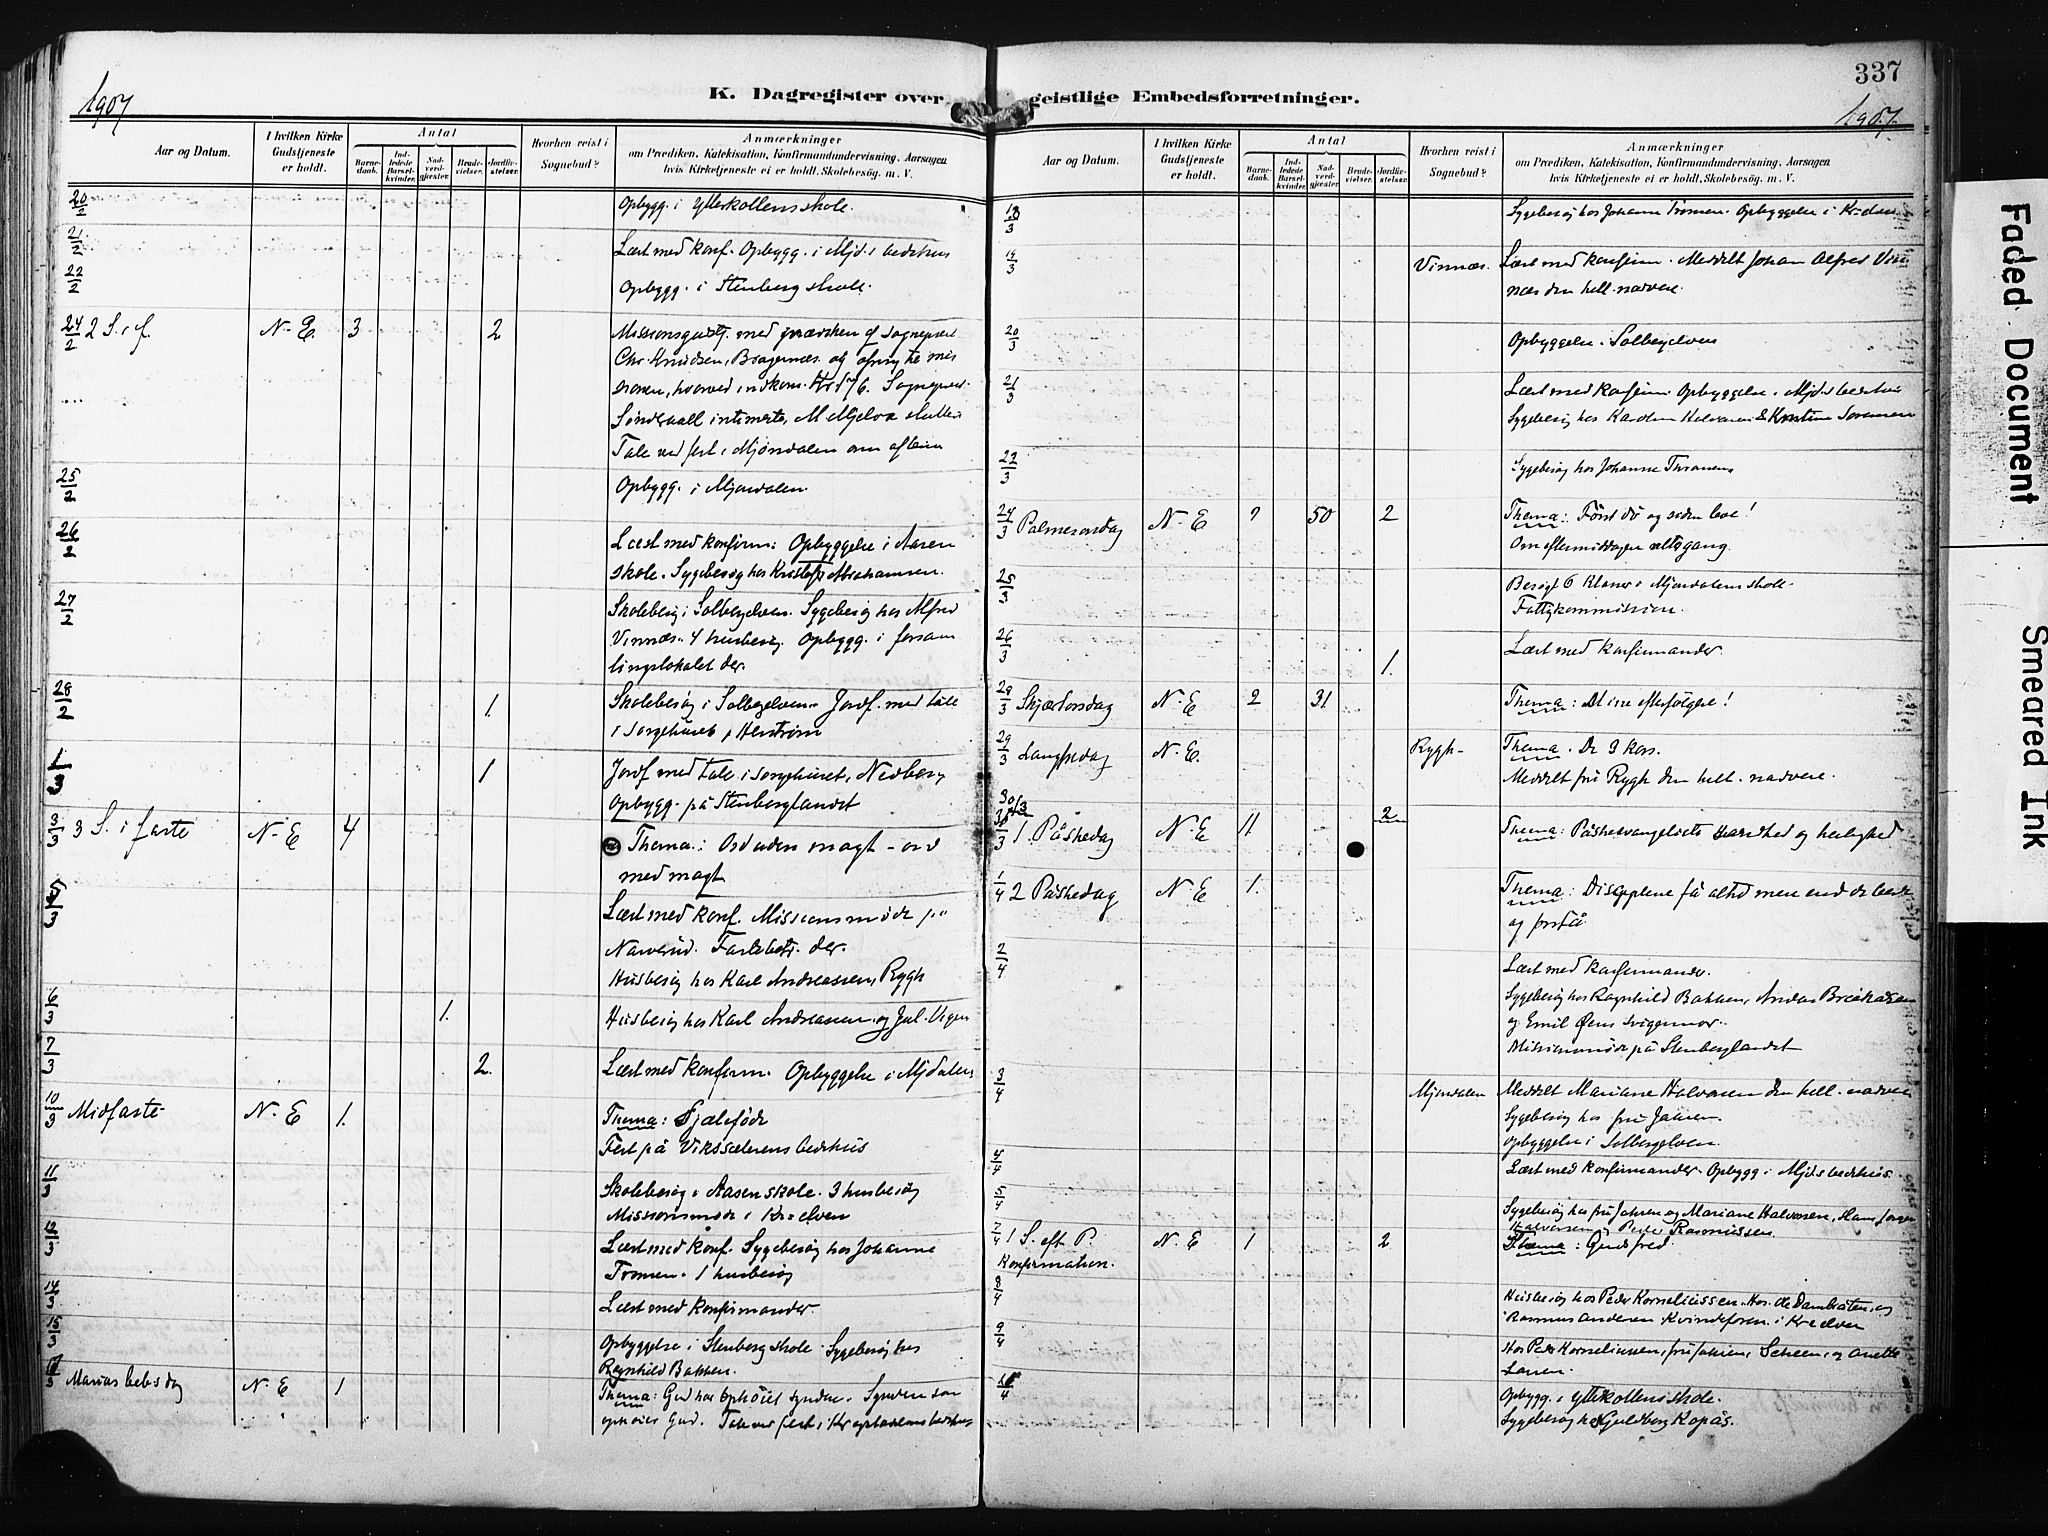 337
1907
K. Dagregister over geistlige Embedsforretninger.
1907.
Aar og Datum.
I hvilken Kirke Gudstjeneste er holdt.
Antal
Barnedaab.
Indledede Barselkvinder.
Nadverdgjester.
Brudevielser.
Jordfæstelser.
Hvorhen reist i Sognebud?
Anmærkninger
om Prædiken, Katekisation, Konfirmandundervisning, Aarsagen
hvis Kirketjeneste ei er holdt, Skolebesøg. m. V.
20/2 Opbygg. i Ytterkollens skole.
21/2 Læst med konf. Opbygg. i Mjd.s bedehus
22/2 Opbygg. i Stenberg skole.
24/2 2 S. i f. N-E. 3 2 Missionsgudstj. med præken af Sognepræst
Chr. Knudsen, Bragernæs og
Tale ved fest i Mjøndalen om aftenen
25/2 Opbygg. i Mjøndalen.
26/2 Læst med konfirm: Opbyggelse i Aasen
skole. Sygebesøg hos Kristofa Abrahamsen.
27/2 Skolebesøg i Solbergelven. Sygebesøg hos Alfred
Vinnæs. 4 husbesøg. Opbygg. i forsam
lingslokalet der.
28/2 1. Skolebesøg i Solbergelven. Jordf. med tale
i Sørgehuset,
1/3 1 Jordf med tale i sørgehuset, Nedberg
Opbygg. på Stenberglandet
3/3 3 S. i faste N-E 4 Thema: Ord uden magt - ord
med magt
5/3 Læst med konf. Missionsmøde på
Narverud. der.
Husbesøg hos Karl Andreassen, Rygh
6/3 1. Husbesøg hos Karl Andreassen og Jul.
7/3 2. Læst med konfirm. Opbyggelse i Mjdalen
10/3 Midfaste N-E 1. Thema: Sjæleføde
Fest på Vikssæterens bedehus
11/3 Skolebesøg i Aasen skole. 3 husbesøg
Missionsmøde i Kr-elven
12/3 Læst med konf. Sygebesøg hos Johanne
Tronsen. 1 husbesøg
14/3 Læst med konfirmander.
15/3 Opbyggelse i Stenberg skole. Sygebesøg hos
Ragnhild Bakken.
17/3 Marias bebs dag N-E 1 Thema: Gud har ophøiet synden. Synden som
ophøiet Gud. Tale ved fest i
Aar og Datum.
I hvilken Kirke Gudstjeneste er holdt.
Antal
Barnedaab.
Indledede Barselkvinder.
Nadverdgjester.
Brudevielser.
Jordfæstelser.
Hvorhen reist i Sognebud?
Anmærkninger
om Prædiken, Katekisation, Konfirmandundervisning, Aarsagen
hvis Kirketjeneste ei er holdt, Skolebesøg m. V.
18/3 Sygebesøg hos Johanne Tronsen. Opbyggelse i
19/3 Vinnæs. Læst med konfirm. Meddelt Johan Alfred Vin
næs den hell. nadvere.
20/3 Opbyggelse. Solbergelven
21/3 Læst med konfirm. Opbyggelse. Mjd.s bedehus
Sygebesøg hos Karoline Halvorsen & Kristine Sorensen
22/3 Sygebesøg hos Johanne Tronsen
24/3 Palmesøndag N-E 7 50 2 Thema: Først dø og siden leve!
Om eftermiddagen altergang.
25/3 Besøgt 6 Klasser i Mjøndalens skole.
Fattigkommission.
26/3 1. Læst med konfirmander.
28/3 Skjærtorsdag N-E 2 31 Thema: efterfølgere!
29/3 Langfredag N-E. Rygh- Thema. De 3 kors.
Meddelt fru Rygh den hell. nadvere.
30/3 2
31/3 1 Påskedag N-E 11 Thema: Påskeevangeliets sandhed og herlighed
1/4 2 Påskedag N-E 1. Thema: Disciplene få altid mere end de bede
og forstå
2/4 Læst med konfirmander.
Sygebesøg hos Ragnhild Bakken,
og Emil Øens svigermor.
Missionsmøde på Stenberglandet
3/4 Mjøndalen Meddelt Mariane Halvorsen den hell. nadvere
Sygebesøg hos fru Jahren
Opbyggelse i Solbergelven.
4/4 Læst med konfirmander. Opbygg i Mjds bedehus.
5/4 Sygebesøg hos fru Jahren og Mariane Halvorsen, Hans Jørgen
Halvorsen, Peder Rasmussen
7/4 1 S. eft. P. N-E 1 2 Thema: Guds fred.
Konfirmation.
8/4 Husbesøg hos Peder Korneliussen.
Rasmus Andersen. Kvindeforen. i Kr-elven
9/4 Hos Peder Korneliussen, fru Jahren, og Anette
Larsen.
/4 Opbygg. i Ytterkollens skole.
Sygebesøg hos Gulborg Kopås.
Faded Document
Smeared Ink